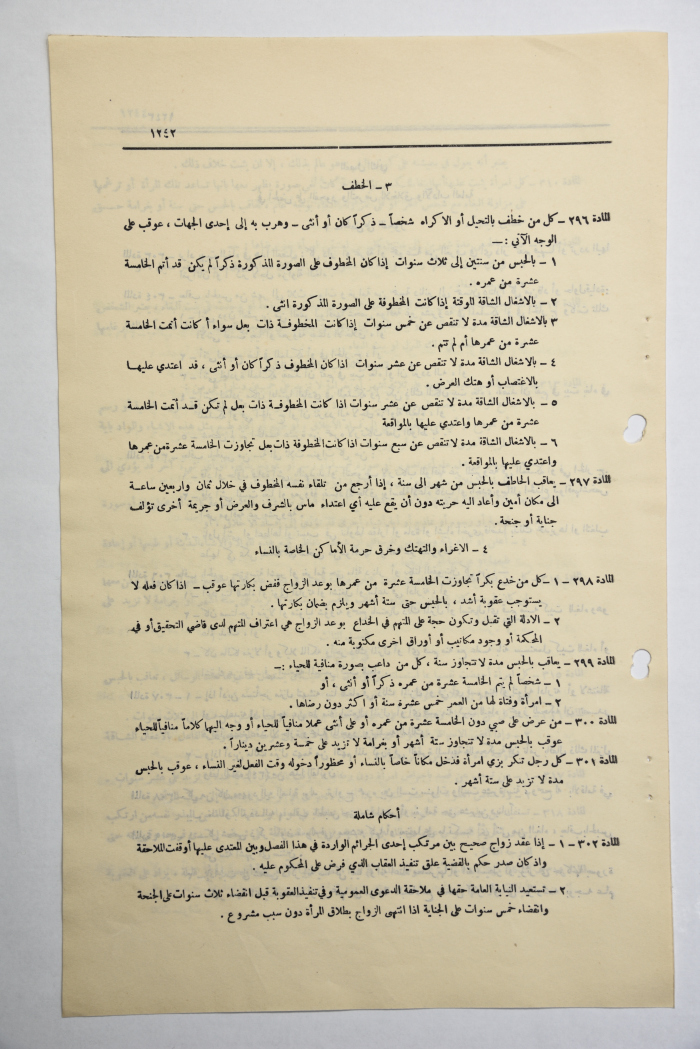 ١٢٤٢
٣ - الخطف
المادة ٢٩٦ - كل من خطف بالتحيل أو الاكراه شخصاً - ذكراً كان أو أنثى - وهرب به إلى إحدى الجهات ، عوقب على
الوجه الآتي : —
١ - بالحبس من سنتين إلى ثلاث سنوات إذا كان المخطوف على الصورة المذكورة ذكراً لم يكن قد أتم الخامسة
عشرة من عمره .
٢ - بالاشغال الشاقة المؤقتة إذا كانت المخطوفة على الصورة المذكورة انثى .
٣ بالاشغال الشاقة مدة لا تنقص عن خمس سنوات إذا كانت المخطوفة ذات بعل سواء أكانت أتمت الخامسة
عشرة من عمرها أم لم تتم .
٤ - بالاشغال الشاقة مدة لا تنقص عن عشر سنوات اذا كان المخطوف ذكراً كان أو أنثى ، قد اعتدي عليهـا
بالاغتصاب أو هتك العرض .
٥ - بالاشغال الشاقة مدة لا تنقص عن عشر سنوات اذا كانت المخطوفة ذات بعل لم تكن قد أتمت الخامسة
عشرة من عمرها واعتدي عليها بالمواقعة
٦ - بالاشغال الشاقة مدة لا تنقص عن سبع سنوات اذا كانت المخطوفة ذات بعل تجاوزت الخامسة عشرة من عمرها
واعتدي عليها بالمواقعة .
المادة ٢٩٧ - يعاقب الخاطف بالحبس من شهر الى سنة ، إذا أرجع من تلقاء نفسه المخطوف في خلال ثمان واربعين ساعة
الى مكان أمين وأعاد اليه حريته دون أن يقع عليه أي اعتداء ماس بالشرف والعرض أو جريمة أخرى تؤلف
جناية أو جنحة .
٤ - الاغراء والتهتك وخرق حرمة الأماكن الخاصة بالنساء
المادة ٢٩٨ - ١ - كل من خدع بكراً تجاوزت الخامسة عشرة من عمرها بوعد الزواج ففض بكارتها عوقب - اذا كان فعله لا
يستوجب عقوبة أشد ، بالحبس حتى ستة أشهر ويلزم بضمان بكارتها .
٢ - الادلة التي تقبل وتكون حجة على المتهم في الخداع بوعد الزواج هي اعتراف المتهم لدى قاضي التحقيق أو في
المحكمة أو وجود مكاتيب أو أوراق اخرى مكتوبة منه .
المادة ٢٩٩ - يعاقب بالحبس مدة لا تتجاوز سنة ، كل من داعب بصورة منافية للحياء :-
١ - شخصاً لم يتم الخامسة عشرة من عمره ذكراً أو أنثى ، أو
٢ - امرأة وفتاة لها من العمر خمس عشرة سنة أو اكثر دون رضاها .
المادة ٣٠٠ - من عرض على صبي دون الخامسة عشرة من عمره أو على أنثى عملا منافياً للحياء أو وجه اليها كلاماً منافياً للحياء
عوقب بالحبس مدة لا تتجاوز ستة أشهر أو بغرامة لا تزيد على خمسة وعشرين ديناراً .
المادة ٣٠١ - كل رجل تنكر بزي امرأة فدخل مكاناً خاصاً بالنساء أو محظوراً دخوله وقت الفعل لغير النساء ، عوقب بالحبس
مدة لا تزيد على ستة أشهر .
أحكام شاملة
المادة ٣٠٢ - ١ - إذا عقد زواج صحيح بين مرتكب إحدى الجرائم الواردة في هذا الفصل وبين المعتدى عليها أوقفت الملاحقة
واذ كان صدر حكم بالقضية علق تنفيذ العقاب الذي فرض على المحكوم عليه .
٢ - تستعيد النيابة العامة حقها في ملاحقة الدعوى العمومية وفي تنفيذ العقوبة قبل انقضاء ثلاث سنوات على الجنحة
وانقضاء خمس سنوات على الجناية اذا انتهى الزواج بطلاق المرأة دون سبب مشروع .